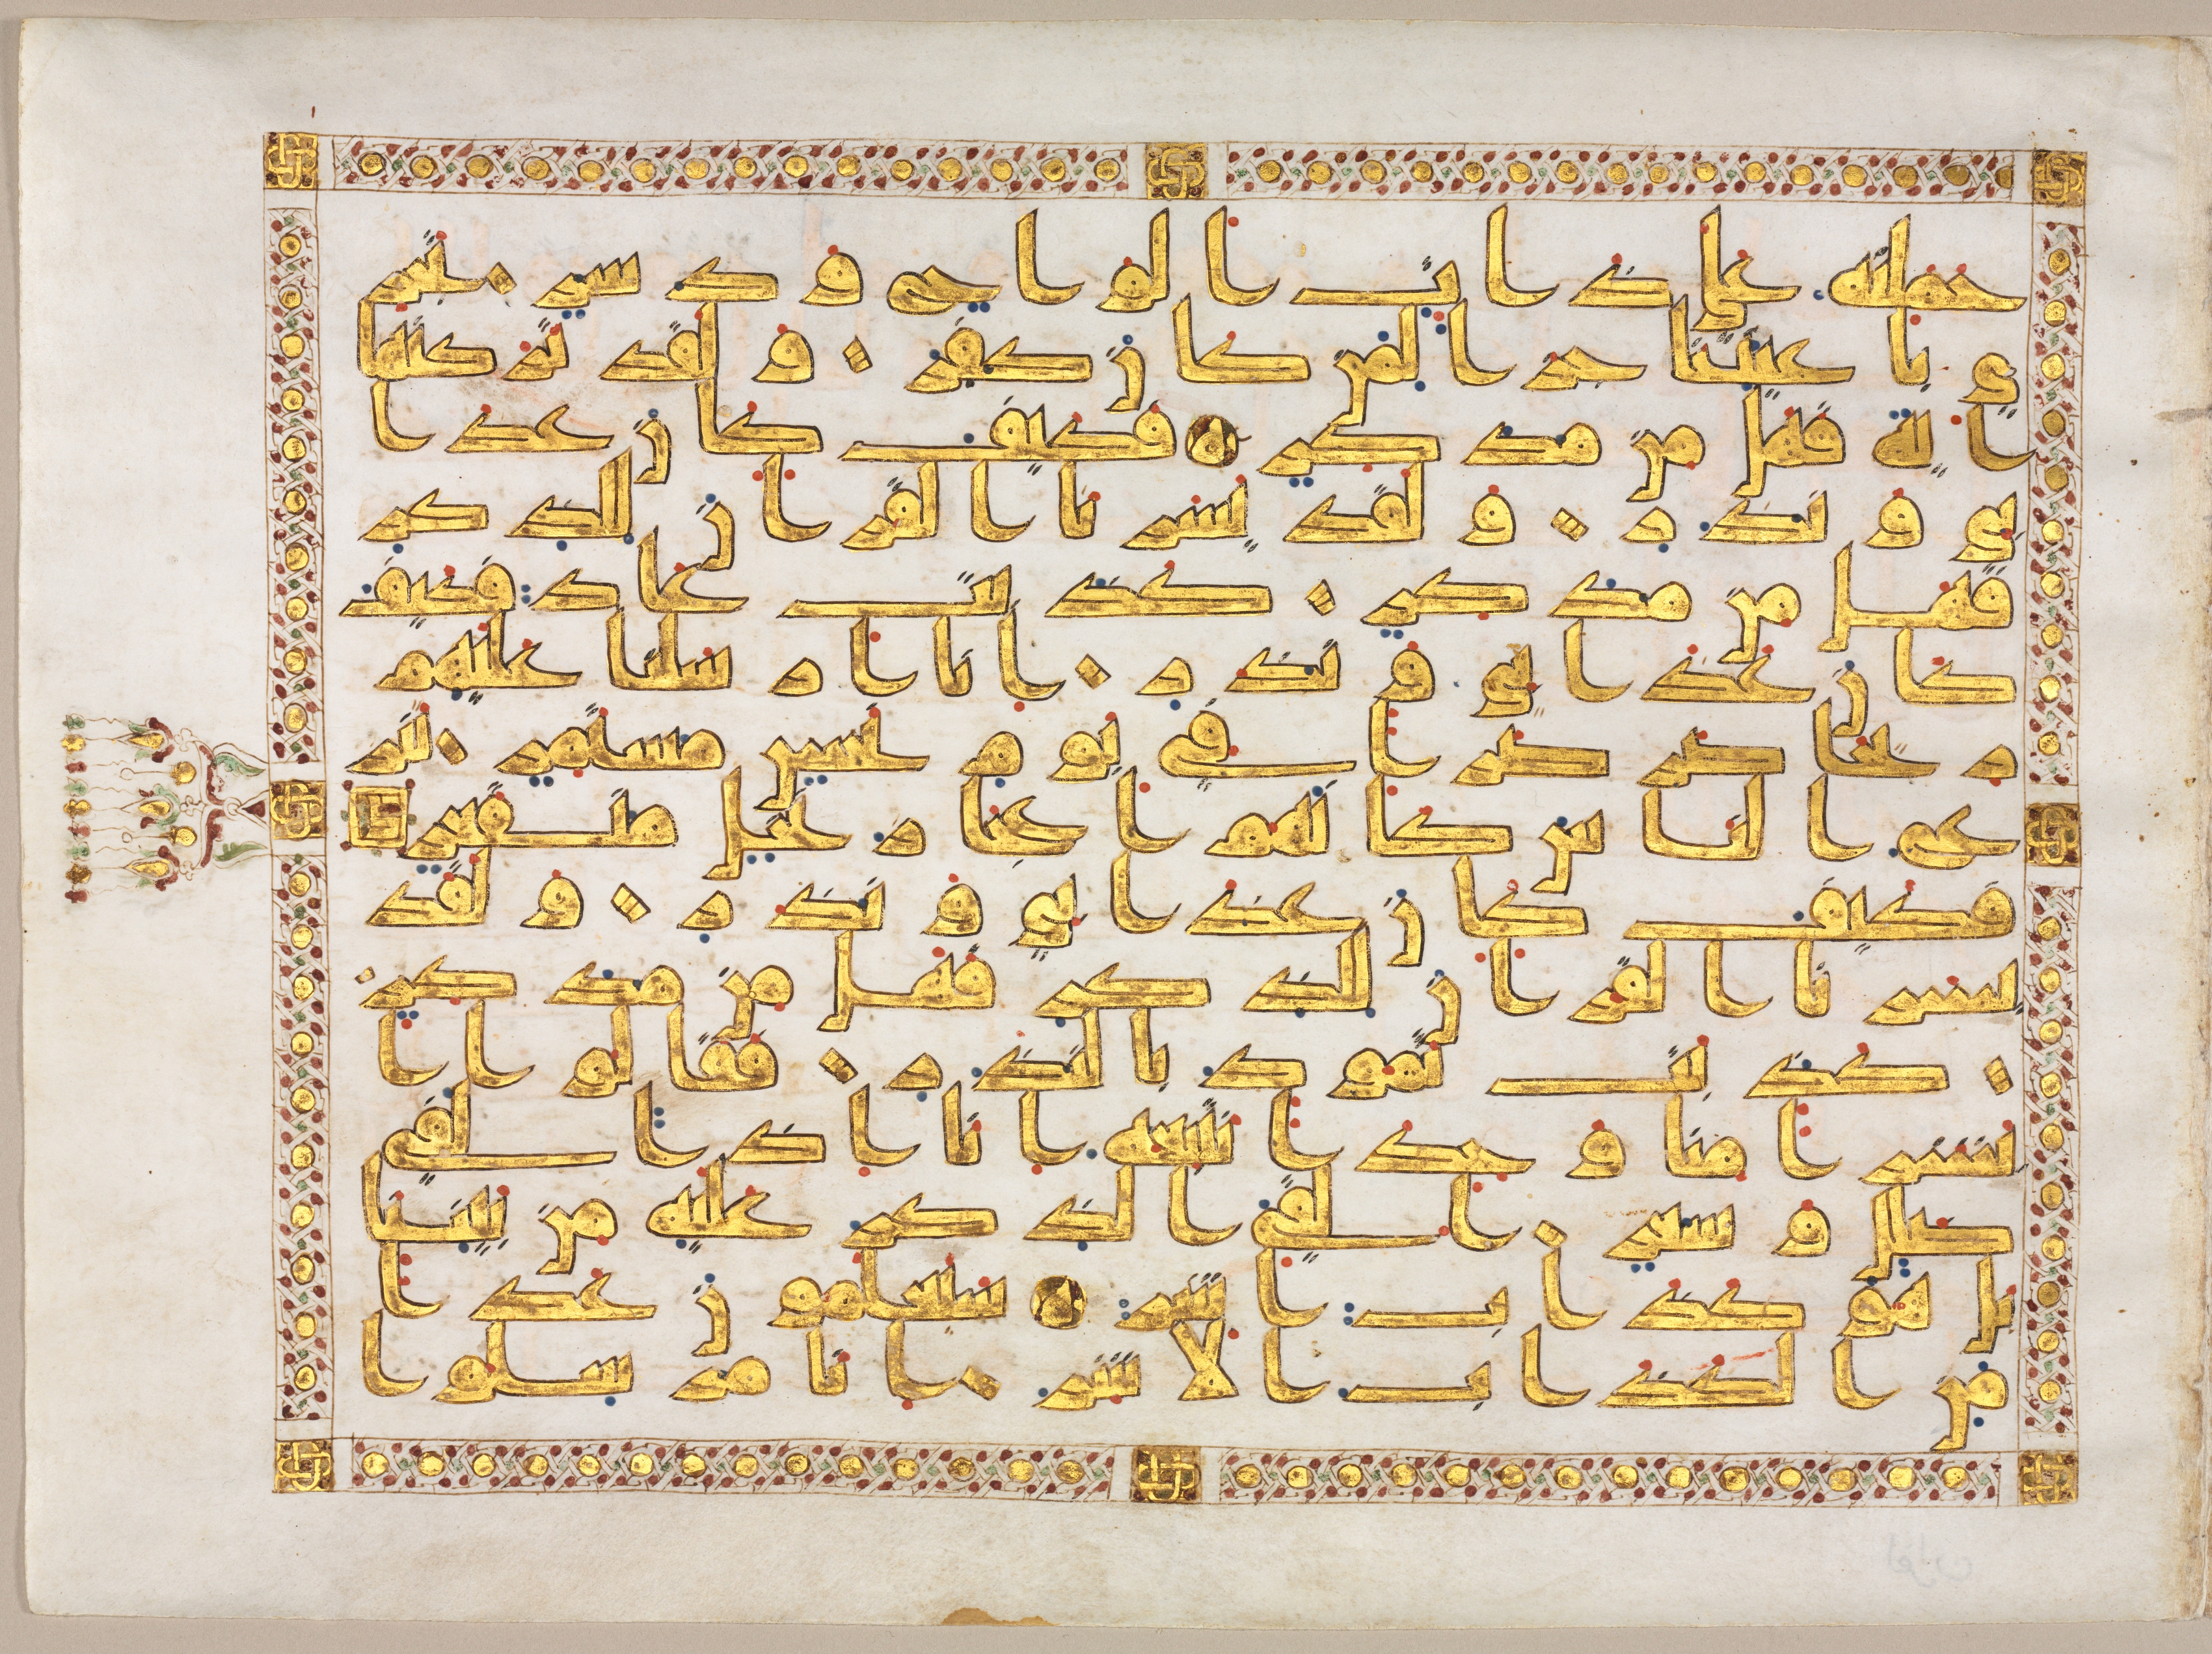 حملنه على ذات الوح ودسر تجر
ي باعيننا جزا لمن كان كفر ولقد تركنها
اية فهل من مدكر فكيف كان عذا
بي ونذر ولقد يسرنا القران للذكر
فهل من مدكر كذبت عاد فكيف
كان عذابي ونذر انا ارسلنا عليهم
ريحا صرصرا في يوم نحس مستمر تنز
ع الناس كانهم اعجاز نخل منقعر
فكيف كان عذابي ونذر ولقد
يسرنا القران للذكر فهل من مدكر
كذبت ثمود بالنذر فقالوا ا
بشرا منا وحدا نتبعه انا اذا لفي
ضلل وسعر القي الذكر عليه من بيننا
بل هو كذاب اشر سيعلمون غدا
من الكذاب الاشر انا مرسلوا